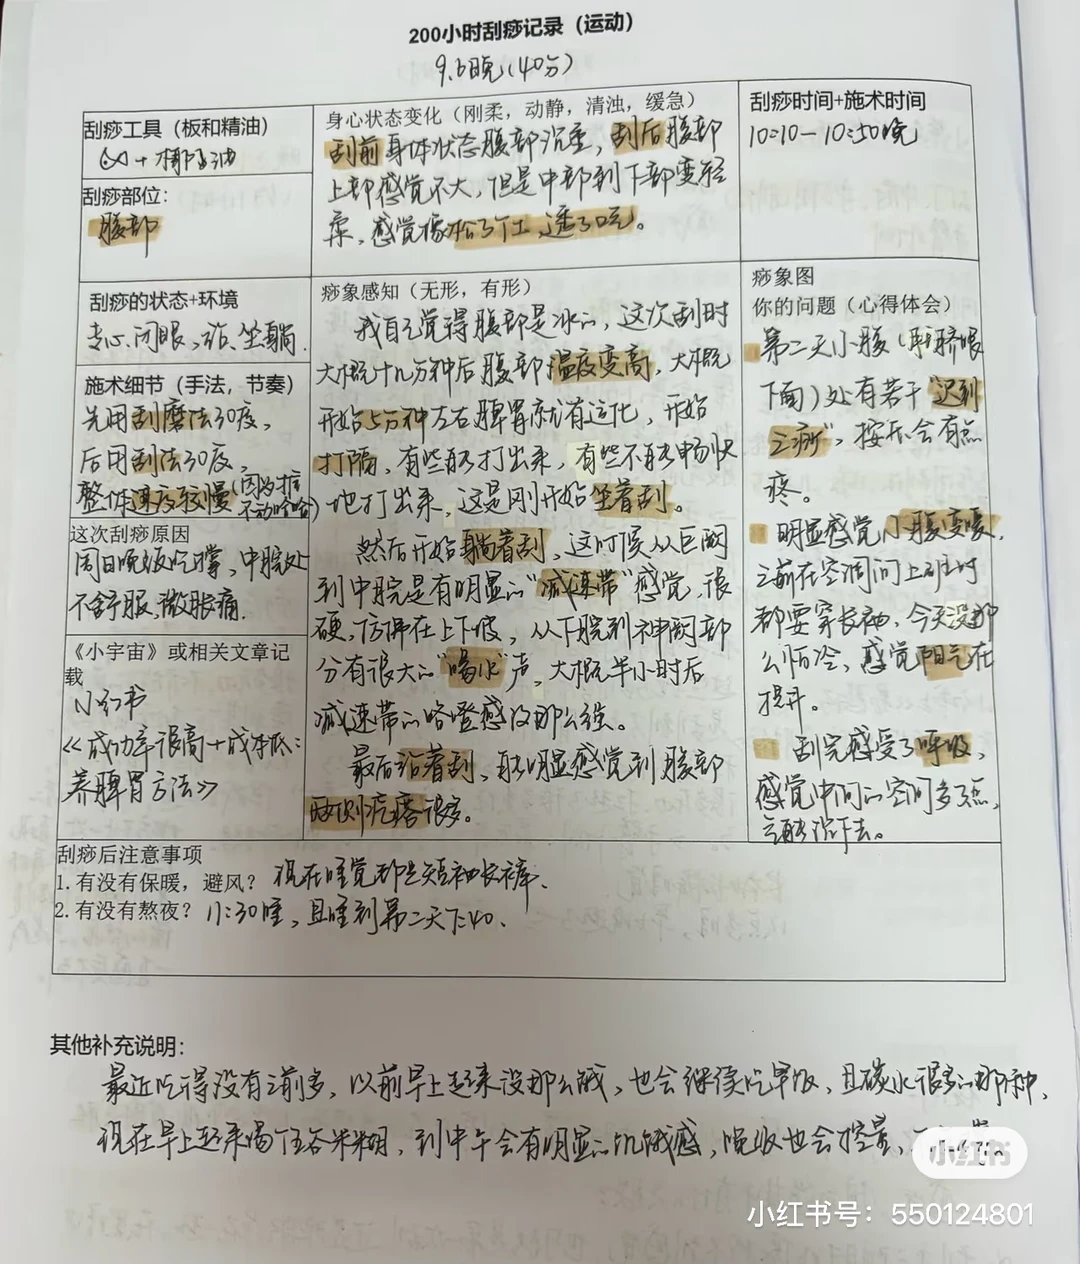 200小时刮痧记录（运动）
9.6日晚（40分）
刮痧工具（板和精油）
+椰子油
刮痧部位：
腹部
身心状态变化（刚柔，动静，清浊，缓急）
刮前身体状态腹部沉重，刮后腹部
上部感觉不大，但是中部到下部变轻
柔，感觉像松了土，透了口气。
刮痧时间+施术时间
10:10-10:50晚
刮痧的状态+环境
专心、闭眼，站、坐躺.
施术细节（手法，节奏）
先用刮磨法30度，
后用刮法30度，
整体速度较慢（因为推
不动哈哈）
这次刮痧原因
周日晚饭吃撑，中脘处
不舒服，微胀痛.
《小宇宙》或相关文章记
载
小红书
《成功率很高+成本低：
养脾胃方法》
痧象感知（无形，有形）
我自己觉得腹部是冰的，这次刮时
大概十几分钟后腹部温度变高，大概
开始5分钟左右脾胃就有运化，开始
打嗝，有些能打出来，有些不能畅快
地打出来，这是刚开始坐着刮。
然后开始躺着刮，这时候从巨阙
到中脘是有明显的“减速带”感觉，很
硬，仿佛在上下坡，从下脘到神阙部
分有很大的“喝水”声，大概半小时后
减速带的咯噔感没那么强。
最后站着刮，能明显感觉到腹部
两侧疙瘩很多。
痧象图
你的问题（心得体会）
第二天小腹（肚脐眼
下面）处有若干“迟到
之痧”，按压会有点
疼。
明显感觉小腹变暖，
之前在空调间上班时
都要穿长袖，今天没那
么怕冷，感觉阳气在
提升。
刮完感受了呼吸，
感觉中间的空间多了点，
气能沉下去。
刮痧后注意事项
1.有没有保暖，避风？ 现在睡觉都是短袖长裤.
2.有没有熬夜？ 11:30睡，且睡到第二天7:40.
其他补充说明：
最近吃得没有之前多，以前早上起来没那么饿，也会继续吃早饭，且碳水很多的那种，
现在早上起来喝五谷米糊，到中午会有明显的饥饿感，晚饭也会控量，
小红书
小红书号：550124801